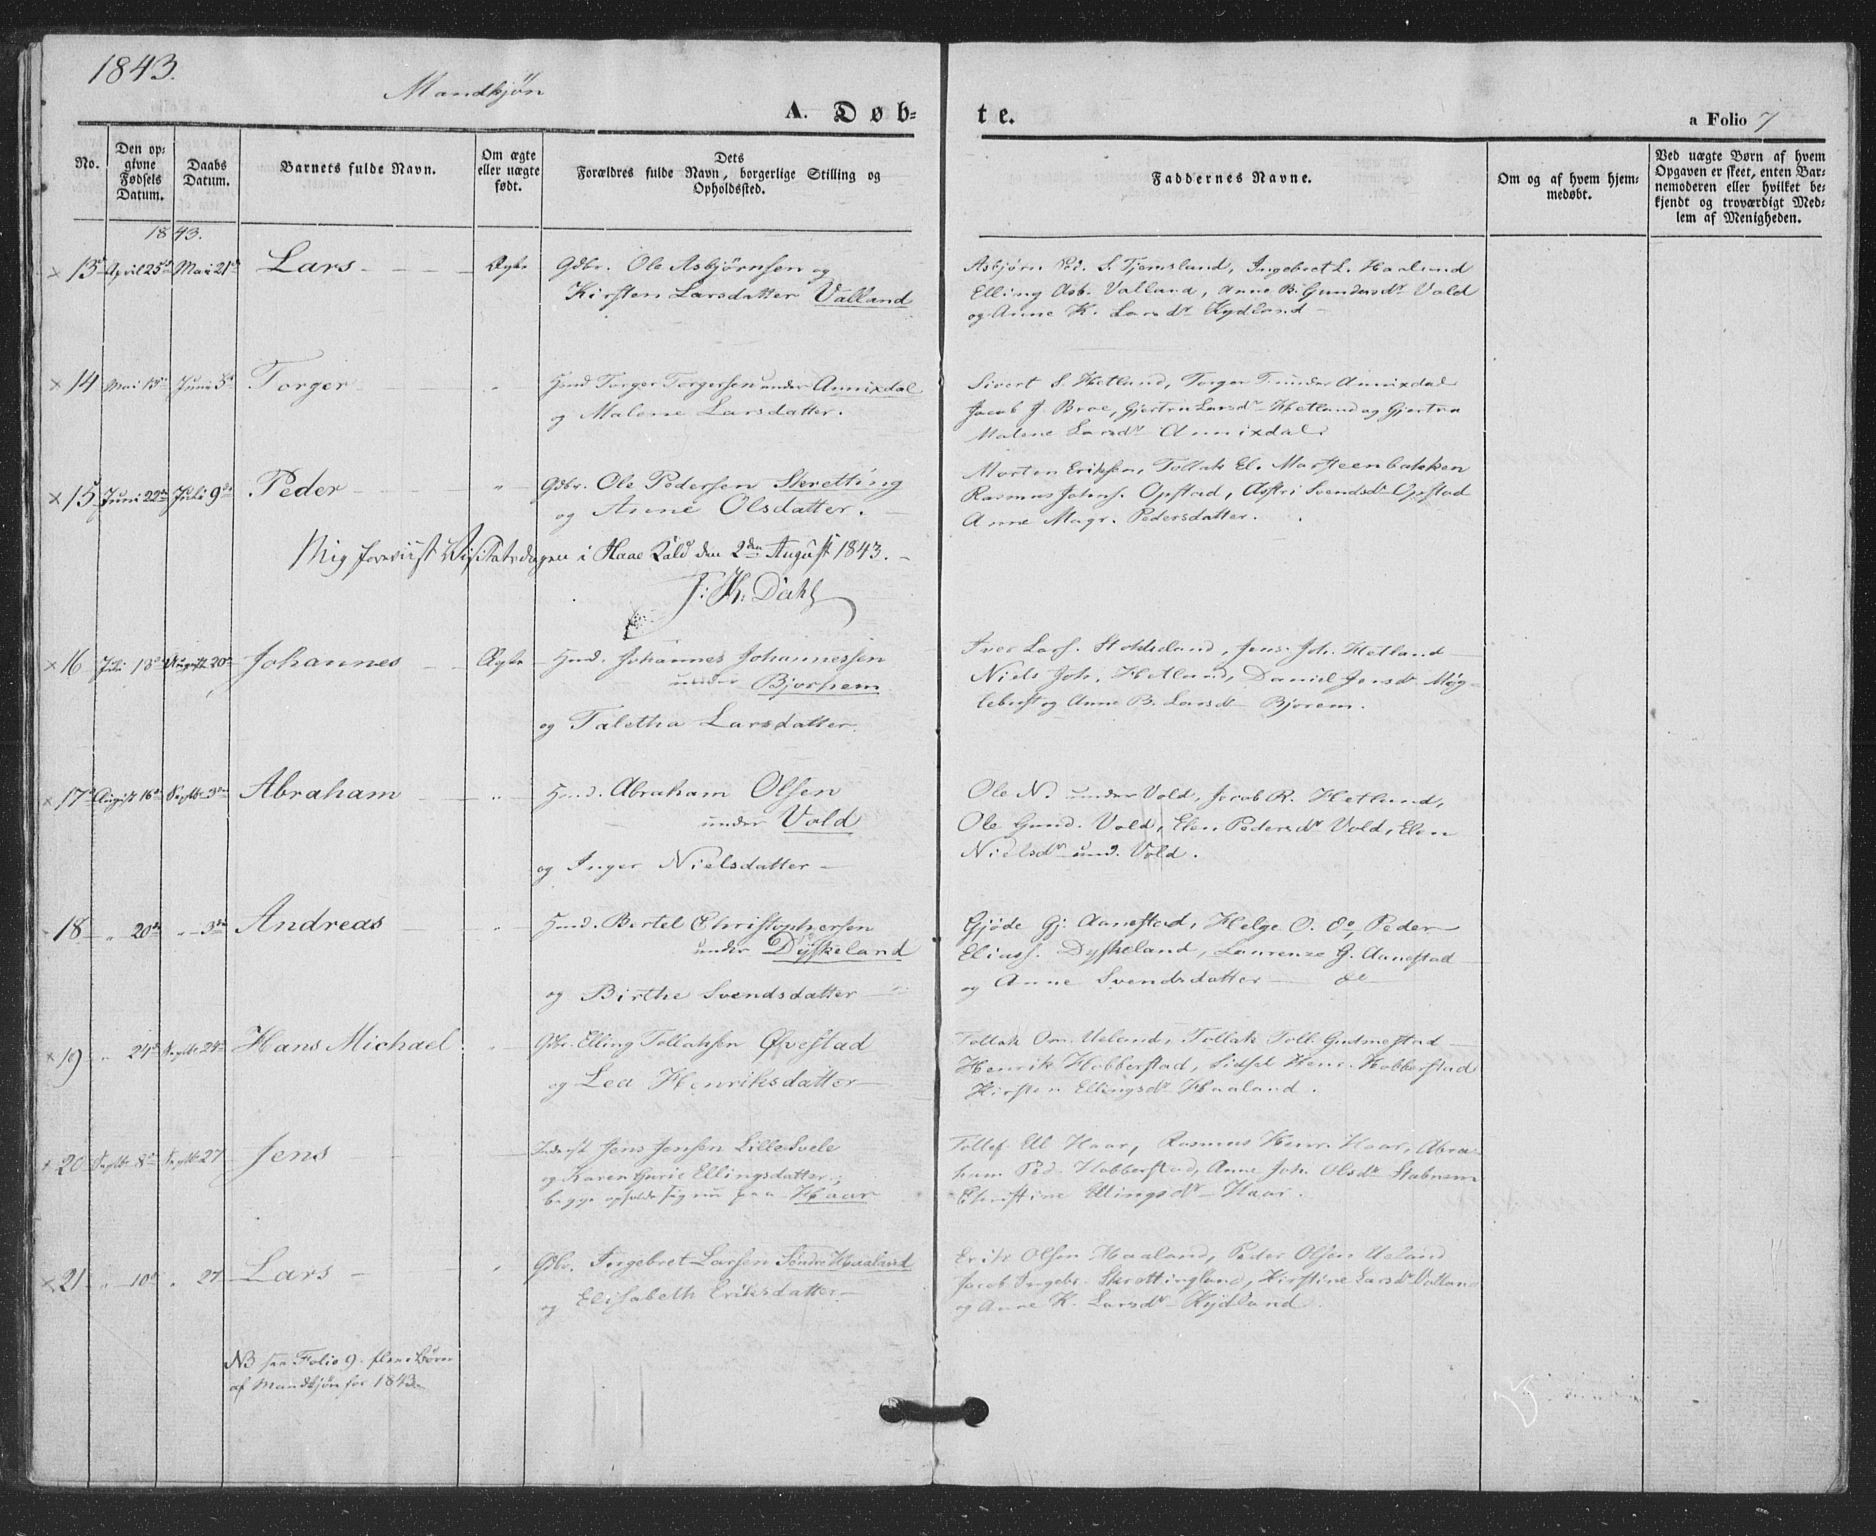 1843.
Mandkjøn
A. Døb-
te.
a Folio 7
No.
Den opgivne Fødsels Datum.
Daabs Datum.
Barnets fulde Navn.
Om ægte eller uægte født.
Dets Forældres fulde Navn, borgerlige Stilling og Opholdssted.
Faddernes Navne.
Om og af hvem hjemmedøbt.
Ved uægte Børn af hvem Opgaven er skeet, enten Barnemoderen eller hvilket bekjendt og troværdigt Medlem af Menigheden.
1843.
× 13 April 25de Mai 21de Lars Ægte Gdbr. Ole Asbjørnsen og
Kirsten Larsdatter Valland
Asbjørn Ped. S. Tjemsland, Ingebret L. Haaland
Elling Asb. Valland, Anne B. Gundersdr Vold
og Anne K. Larsdr Kydland
× 14 Mai 13de Juni 5te Torger " Hmd Torger Torgersen under Annixdal
og Malene Larsdatter.
Sivert S. Hetland, Torger T. under Annixdal
Jacob J. Broe, Gjertru Larsdr Hetland og Gjertru
Malene Larsdr Annixdal
× 15 Juni 22de Juli 9de Peder " Gdbr. Ole Pedersen Skretting
og Anne Olsdatter.
Morten Eriksen, Tollak El. Marsteenbakken
Rasmus Johns. Opstad, Astri Svendsdr Opstad
Anne Magr. Pedersdatter.
Mig foreviist Visitatsdagen i Haae Kald den 2den August 1843.
J: K. Dahl
× 16 Juli 13de August 20de Johannes Ægte Hmd. Johannes Johannessen
under Bjorhem
og Taletha Larsdatter
Iver Lars. Stokkeland, Jens Joh. Hetland
Niels Joh. Hetland, Daniel Jensdr Møg-
lebust og Anne B. Larsdr Bjorem.
× 17 August 16de Septbr 3de Abraham " Hmd. Abraham Olsen
under Vold
og Inger Nielsdatter
Ole N. under Vold, Jacob R. Hetland,
Ole Gund. Vold, Elen Pedersdr Vold, Elen
Nielsdr und. Vold.
18 " 20de " 3de Andreas " Hmd. Bertel Christophersen
under Dyskeland
og Birthe Svendsdatter
Gjøde Gj. Aanestad, Helge O. do, Peder
Eliass. Dyskeland, Laurenze G. Aanestad
og Anne Svendsdatter do
× 19 " 24de Septbr 24de Hans Michael " Gdbr. Elling Tollaksen Øvestad
og Lea Henriksdatter
Tollak Om. Ueland, Tollak Toll. Gudmestad
Henrik Hobberstad, Sidsel Henr. Hobberstad
Kirsten Ellingsdr Haaland.
× 20 Septbr 8de Septbr 27 Jens Inderst Jens Jensen Lille Svele
og Karen Gurie Ellingsdatter,
begge opholde sig nu paa Haar
Tollef El Haar, Rasmus Henr. Haar, Abra-
ham Ped. Hobberstad, Anne Joh. Olsdr Stabnem
Christine Ellingsdr Haar.
× 21 " 10de " 27 Lars " Gdbr. Ingebret Larsen Søndre Haaland
og Elisabeth Eriksdatter
Erik Olsen Haaland, Peder Olsen Ueland
Jacob Ingebr. Skrettingland, Kirstine Larsdr Valland
og Anne K. Larsdr Kydland.
NB paa Folio 9. flere Børn
af Mandkjøn for 1843